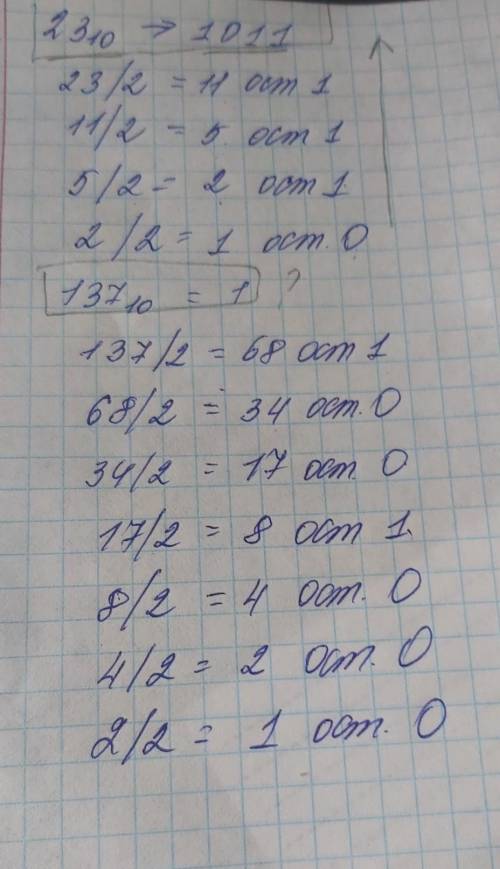 23₁₀ → 1011
23/2 = 11 ост 1
11/2 = 5 ост 1
5/2 = 2 ост 1
2/2 = 1 ост. 0
137₁₀ = 1 ?
137/2 = 68 ост 1
68/2 = 34 ост. 0
34/2 = 17 ост. 0
17/2 = 8 ост 1
8/2 = 4 ост. 0
4/2 = 2 ост. 0
2/2 = 1 ост. 0